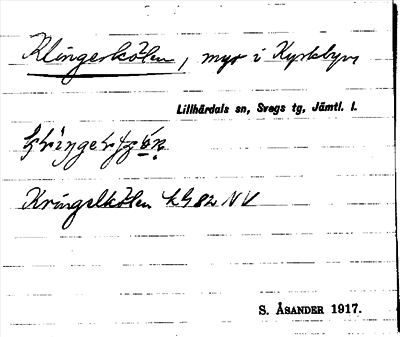 Klingerkölen, myr i Kyrkbyn
Lillhärdals sn, Svegs tg, Jämtl. l.
Kringelkölen kg 82 NV
S. ÅSANDER 1917.